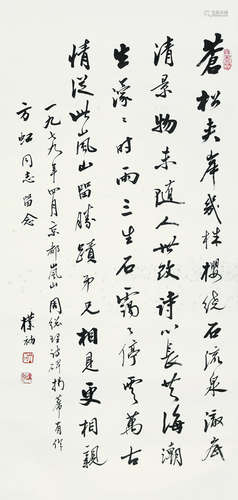 蒼松夹岸幾株樱绕石流泉澈底
清景物未随人世改诗心長共海潮
生濛々時雨三生石靄々停雲萬古
情從此嵐山留勝蹟弟兄相見更相親
一九七九年四月京都嵐山周總理诗碑揭幕有作
方虹同志留念
樸初